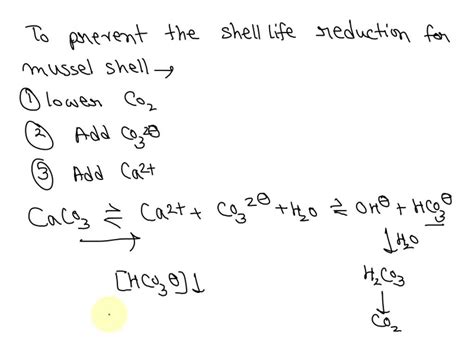 To prevent the shell life reduction for
mussel shell →
① lower CO₂
② Add CO₃²⊖
③ Add Ca²⁺
CaCO₃ ⇌ Ca²⁺ + CO₃²⊖ + H₂O ⇌ OH⊖ + HCO₃⊖
↓ H₂O
[HCO₃⊖]↓
H₂CO₃
↓
CO₂